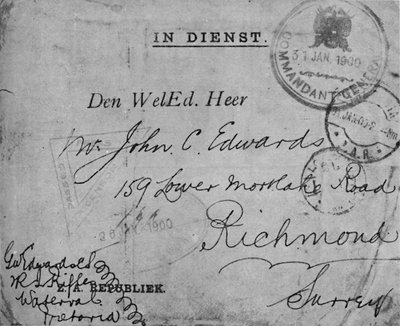 IN DIENST.
COMMANDANT-GENERAAL
31 JAN. 1900
Den WelEd. Heer
Mr John C. Edwards
159 Lower Mortlake Road
Richmond
Surrey
26 JAN. 1900
Z. A. REPUBLIEK.
Rifles
Waterval
Pretoria